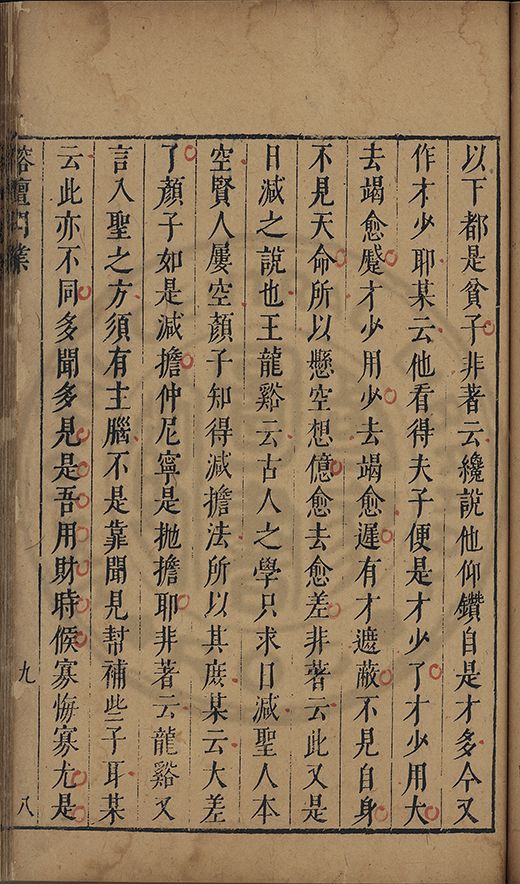 以下都是貧子非著云纔說他仰鑽自是才多今又
作才少耶某云他看得夫子便是才少了才少用大
去竭愈蹙才少用少去竭愈遲有才遮蔽不見自身
不見天命所以懸空想億愈去愈差非著云此又是
日減之說也王龍谿云古人之學只求日減聖人本
空賢人屢空顏子知得減擔法所以其庶某云大差
了顏子如是減擔仲尼寧是拋擔耶非著云龍谿又
言入聖之方須有主腦不是靠聞見幫補些子耳某
云此亦不同多聞多見是吾用財時候寡悔寡尤是
榕壇問業
九
八